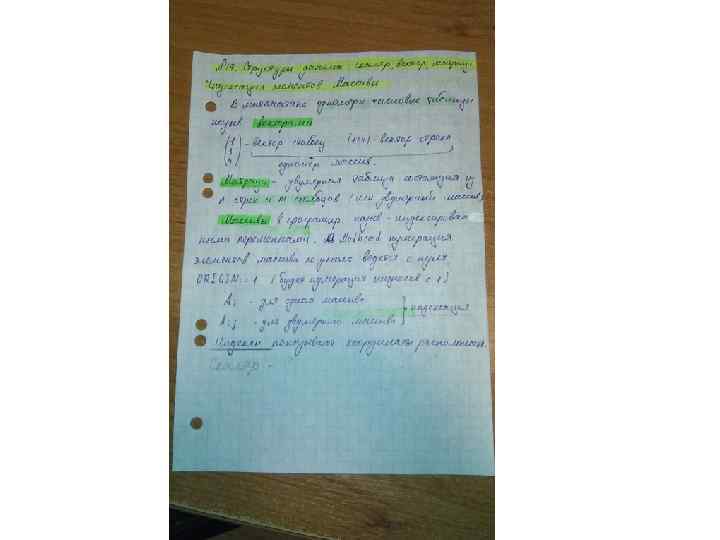 №17. Структуры данных: скаляр, вектор, матрица.
Индексация элементов. Массивы
В математике одномерн числовые таблицы
назыв векторами
- вектор столбец (1 1 1) - вектор строка
одномер массив.
Матрица - двумерная таблица состоящая из
n строк и m столбцов (или двумерный массив)
Массивы в програмир. назыв - индексирован
ными переменными. В Mathcad нумерация
элементов массива по умолч ведется с нуля
ORIGIN:=1 (будет нумерация индексов с 1)
Ai - для одном массива
Aij - для двумерного массива } индексация
Индексы показывают координаты расположения.
Скаляр -